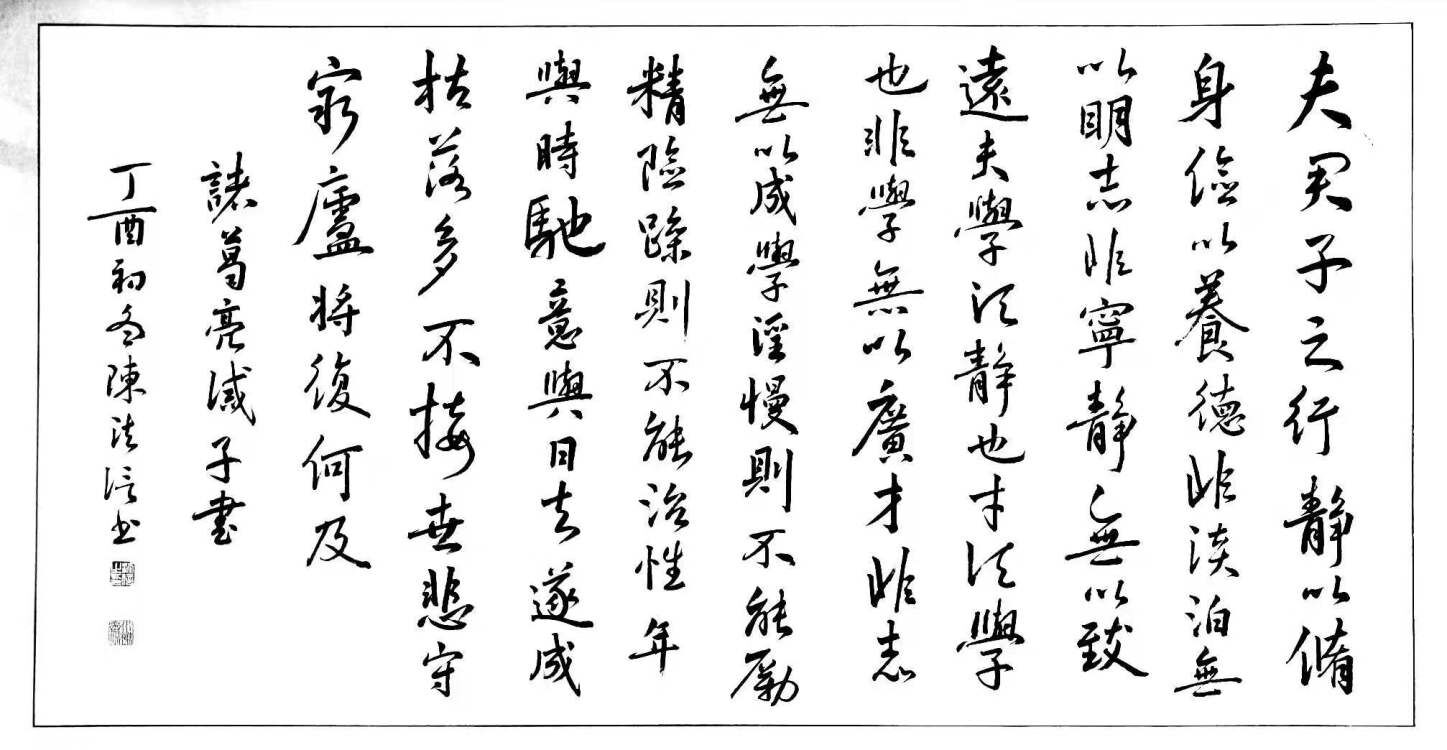 夫君子之行靜以脩
身儉以養德非淡泊無
以眀志非寧靜無以致
遠夫學須靜也才須學
也非學無以廣才非志
無以成學淫慢則不能勵
精險躁則不能治性年
與時馳意與日去遂成
枯落多不接世悲守
窮廬將復何及
諸葛亮誡子書
丁酉初冬陳法书